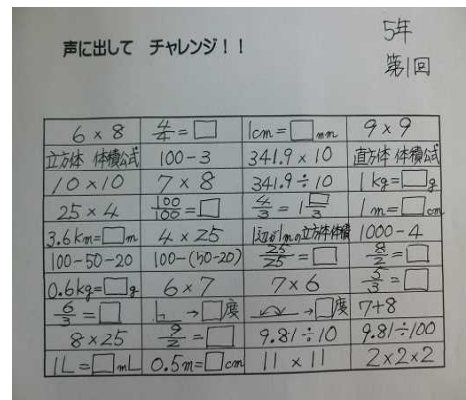 声に出して チャレンジ！！
5年
第1回
6×8 4/4=□ 1cm=□mm 9×9
立方体 体積公式 100-3 341.9×10 直方体 体積公式
10×10 7×8 341.9÷10 1kg=□g
25×4 100/100=□ 4/3=1□/3 1m=□cm
3.6km=□m 4×25 1辺が1mの立方体体積 1000-4
100-50-20 100-(50-20) 25/25=□ 8/2=□
0.6kg=□g 6×7 7×6 5/3=□
6/3=□ →□度 →□度 7+8
8×25 9/2=□ 9.81÷10 9.81÷100
1L=□mL 0.5m=□cm 11×11 2×2×2